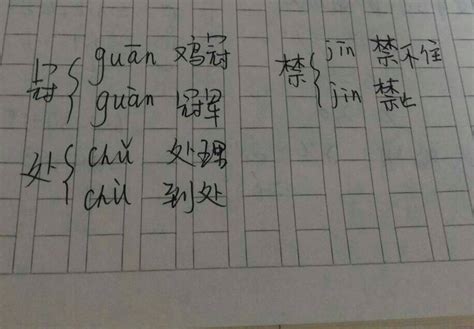 冠 guān 鸡冠
guàn 冠军
处 chǔ 处理
chù 到处
禁 jīn 禁不住
jìn 禁止